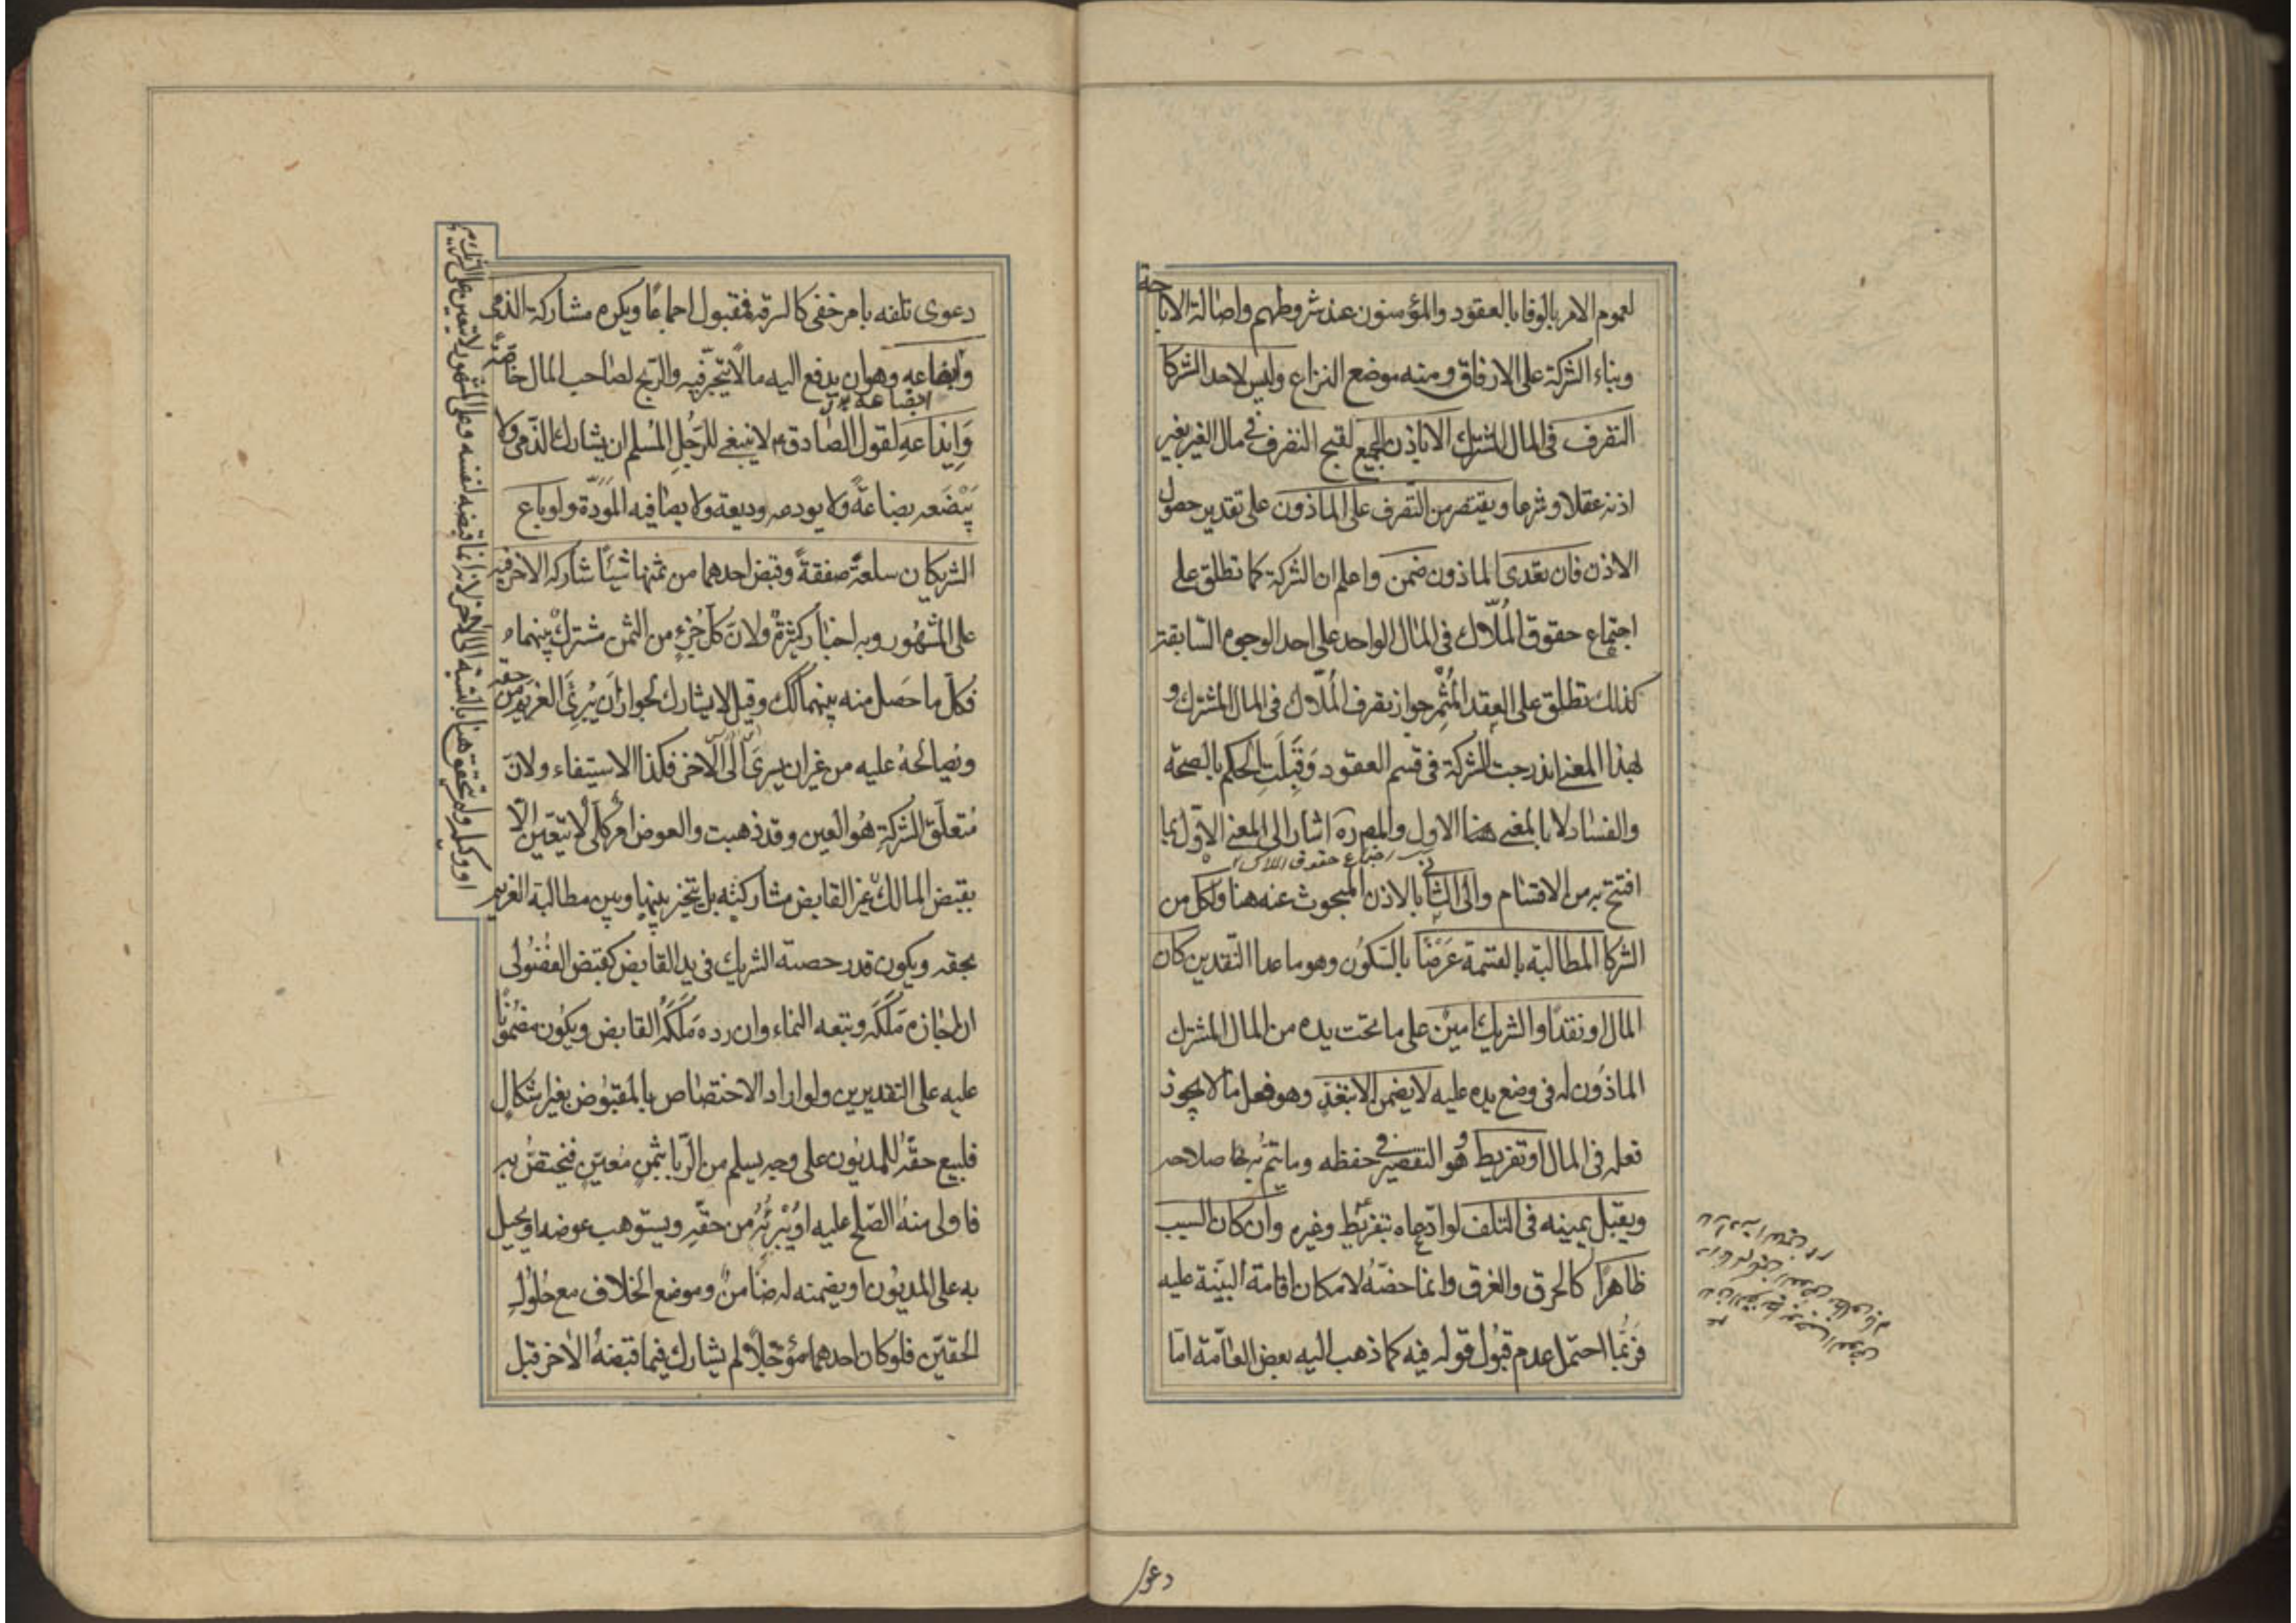 لعموم الامر بالوفا بالعقود والمؤمنون عند شروطهم واصالة الابا
حة
وبناء الشركة على الارفاق ومنه موضع النزاع وليس لاحد الشركا
التصرف فى المال المشترك الا باذن الجميع لقبح التصرف فى مال الغير بغير
اذنه عقلا وشرعا ويقتصر من التصرف على الماذون على تقدير حصول
الاذن فان تعدى الماذون ضمن واعلم ان الشركة كما تطلق على
اجتماع حقوق المُلّاك فى المال الواحد على احد الوجوه السابقة
كذلك تطلق على العقد المُثمِر جواز تصرف المُلّاك فى المال المشترك و
بهذا المعنى اندرجت الشركة فى قسم العقود وقَبِلَتِ الحكم بالصحة
والفساد لا بالمعنى الاول والمص ره اشار الى المعنى الاوّل بما
اجتماع حقوق الملاك
افتتح به من الاقسام والى الثانى بالاذن المبحوث عنه هنا ولكل من
الشركا المطالبة بالقسمة عَرْضًا بالسّكون وهو ما عدا النّقدين كان
المال او نقدًا والشريك امينٌ على ما تحت يده من المال المشترك
الماذون له فى وضع يده عليه لا يضمن الا بتعدٍ وهو فعل ما لا يجوز
فعله فى المال او تفريط وهو التقصير فى حفظه وما يتم به صلاحه
ويقبل يمينه فى التلف لو ادّعاه بتفريط وغيره وان كان السبب
ظاهرًا كالحرق والغرق وانما خصّهُ لامكان اقامة البيّنة عليه
فربّما احتمل عدم قبُول قوله فيه كما ذهب اليه بعض العامّة امّا
دعوى
دعوى تلفه بامر خفى كالسرقة فمقبول اجماعًا ويكره مشاركة الذمى
وابضاعه وهو ان يدفع اليه مالًا يتّجر فيه والرّبح لصاحب المال خاصّة
وَايداعَهِ لقول الصّادق ع لا ينبغى للرّجُلِ المُسلم ان يشارك الذّمى ولا
يُبْضعه بضاعةً ولا يودعه وديعة ولا يصافيه المَوَدّة ولو باع
الشريكان سلعةً صفقةً وقبض احدهما من ثمنها شيئًا شاركه الاخر فيه
على المشهُور وبه اخبارٌ كثيرةٌ ولانّ كلّ جُزءٍ من الثمن مشتركٌ بينهما
فكلّ ما حَصل منه بينهما كك وقيل لا يشارك لجواز ان يُبرِئَ الغريم من حقه
ويُصالحهُ عليه من غير ان يسرىَ الى الاخر فكذا الاستيفاء ولانّ
مُتعلّق الشركةِ هُو العين وقد ذهبت والعوض امر كلّى لا يتعيّن الّا
بقبض المالك غير القابض مشاركته بل يتخير بينها وبين مطالبة الغريم
بحقه ويكون قدر حصته الشريك فى يد القابض كقبض الفضُولى
ان اجازه مَلَكَه ويتبعه النماء وان رده مَلَكَهُ القابض ويكون مضمُونًا
عليه على التقديرين ولو اراد الاختصاص بالمقبُوض بغير اشكال
فليبع حقّهُ للمديُون على وجه يسلم من الرّبا بثمنٍ مُعيّنٍ فيختصّ به
فاولى منهُ الصّلح عليه او يُبْرئُهُ من حقّهِ ويستوهب عوضه او يحيل
به على المديُون او يضمنه له ضامنٌ وموضع الخلاف مع حُلُولِ
الحقّين فلو كان احدهما مؤجّلًا لم يشارك فيما قبضهُ الاخر قبل